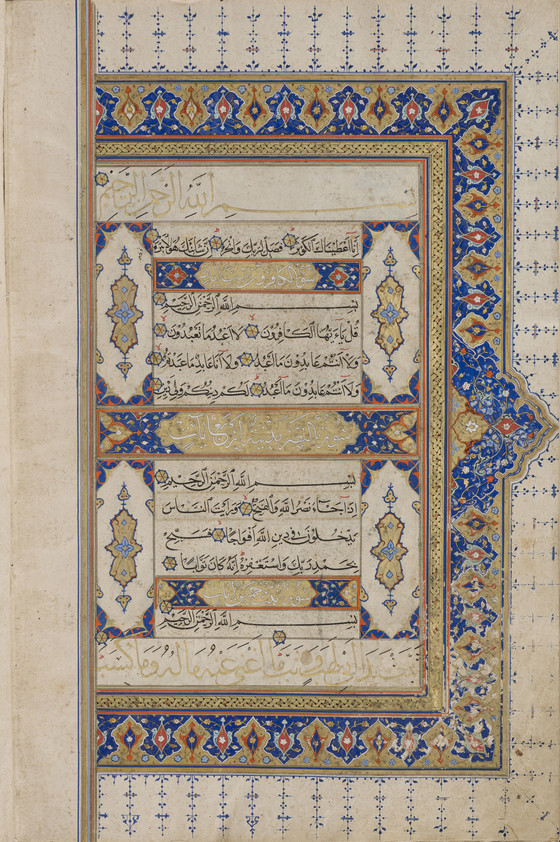 بسم الله الرحمن الرحيم
إنا أعطيناك الكوثر فصل لربك وانحر إن شانئك هو الأبتر
سورة الكافرون
بسم الله الرحمن الرحيم
قل يا أيها الكافرون لا أعبد ما تعبدون
ولا أنتم عابدون ما أعبد ولا أنا عابد ما عبدتم
ولا أنتم عابدون ما أعبد لكم دينكم ولي دين
سورة النصر
بسم الله الرحمن الرحيم
إذا جاء نصر الله والفتح ورأيت الناس
يدخلون في دين الله أفواجا فسبح
بحمد ربك واستغفره إنه كان توابا
سورة
بسم الله الرحمن الرحيم
تبت يدا أبي لهب وتب ما أغنى عنه ماله وما كسب